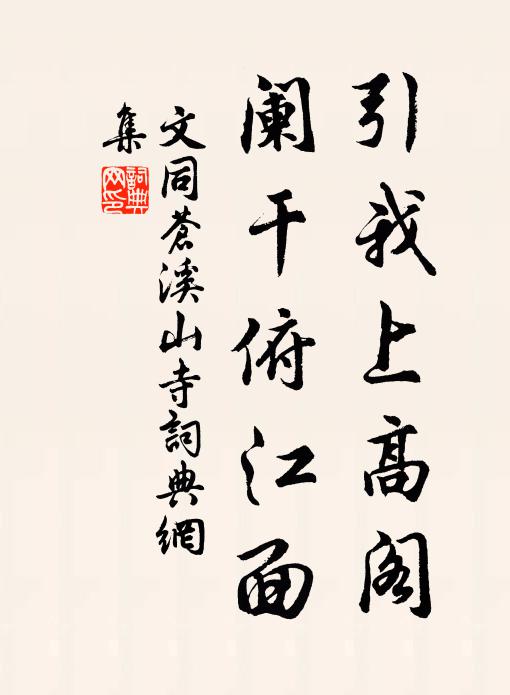 引我上高阁
阑干俯江面
文同苍溪山寺詞典網
集
詞典
网印